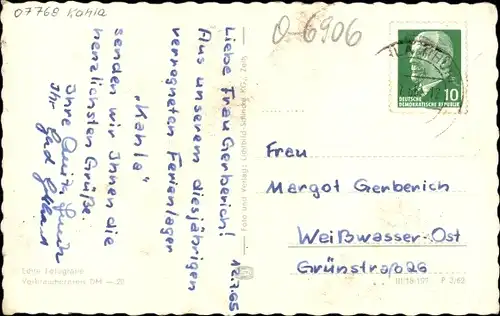 07768 Kahla
O-6906
Liebe Frau Gerberich!
Aus unserem diesjährigen
verregneten Ferienlager
"Kahla"
senden wir Ihnen die
herzlichsten Grüße
Ihre
Ihr
12.7.65
Foto und Verlag: Lichtbild-Schincke KG., Zeitz
Echte Fotografie
Verbraucherpreis DM —,20
DEUTSCHE
DEMOKRATISCHE REPUBLIK
10
Frau
Margot Gerberich
Weißwasser-Ost
Grünstraße 26
III/18-197 P 2/63